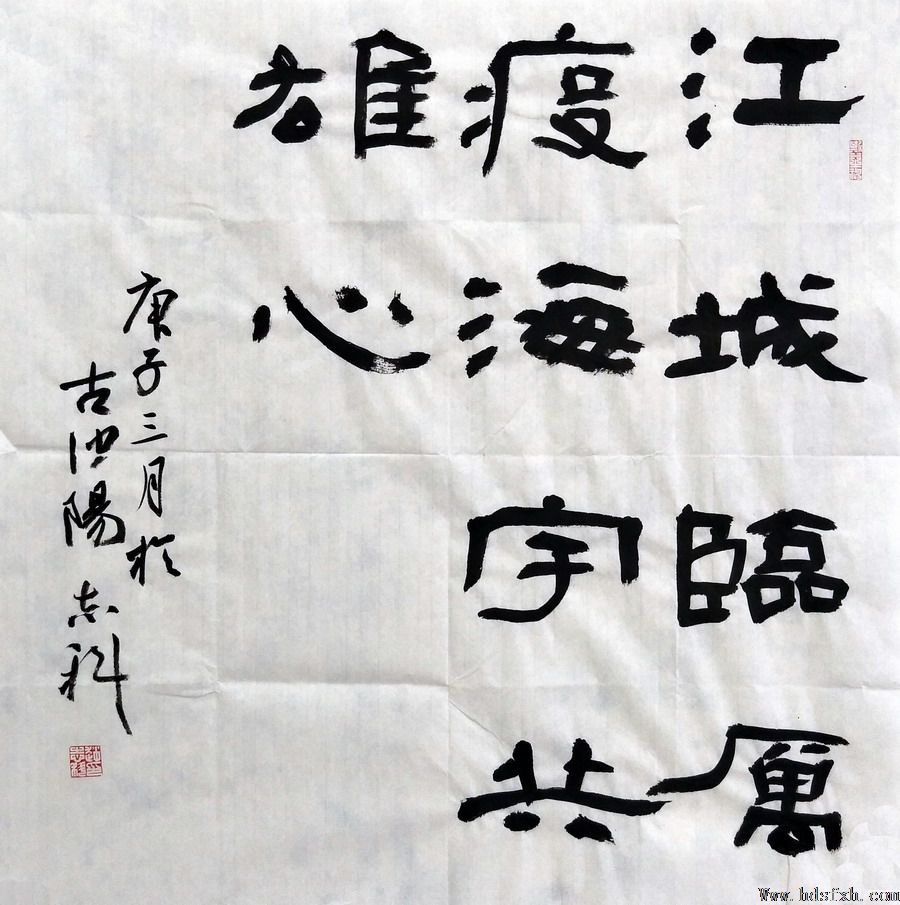 江城臨厲
疫海宇共
雄心
庚子三月於
古 陽 志科
Www.hdsfxh.com